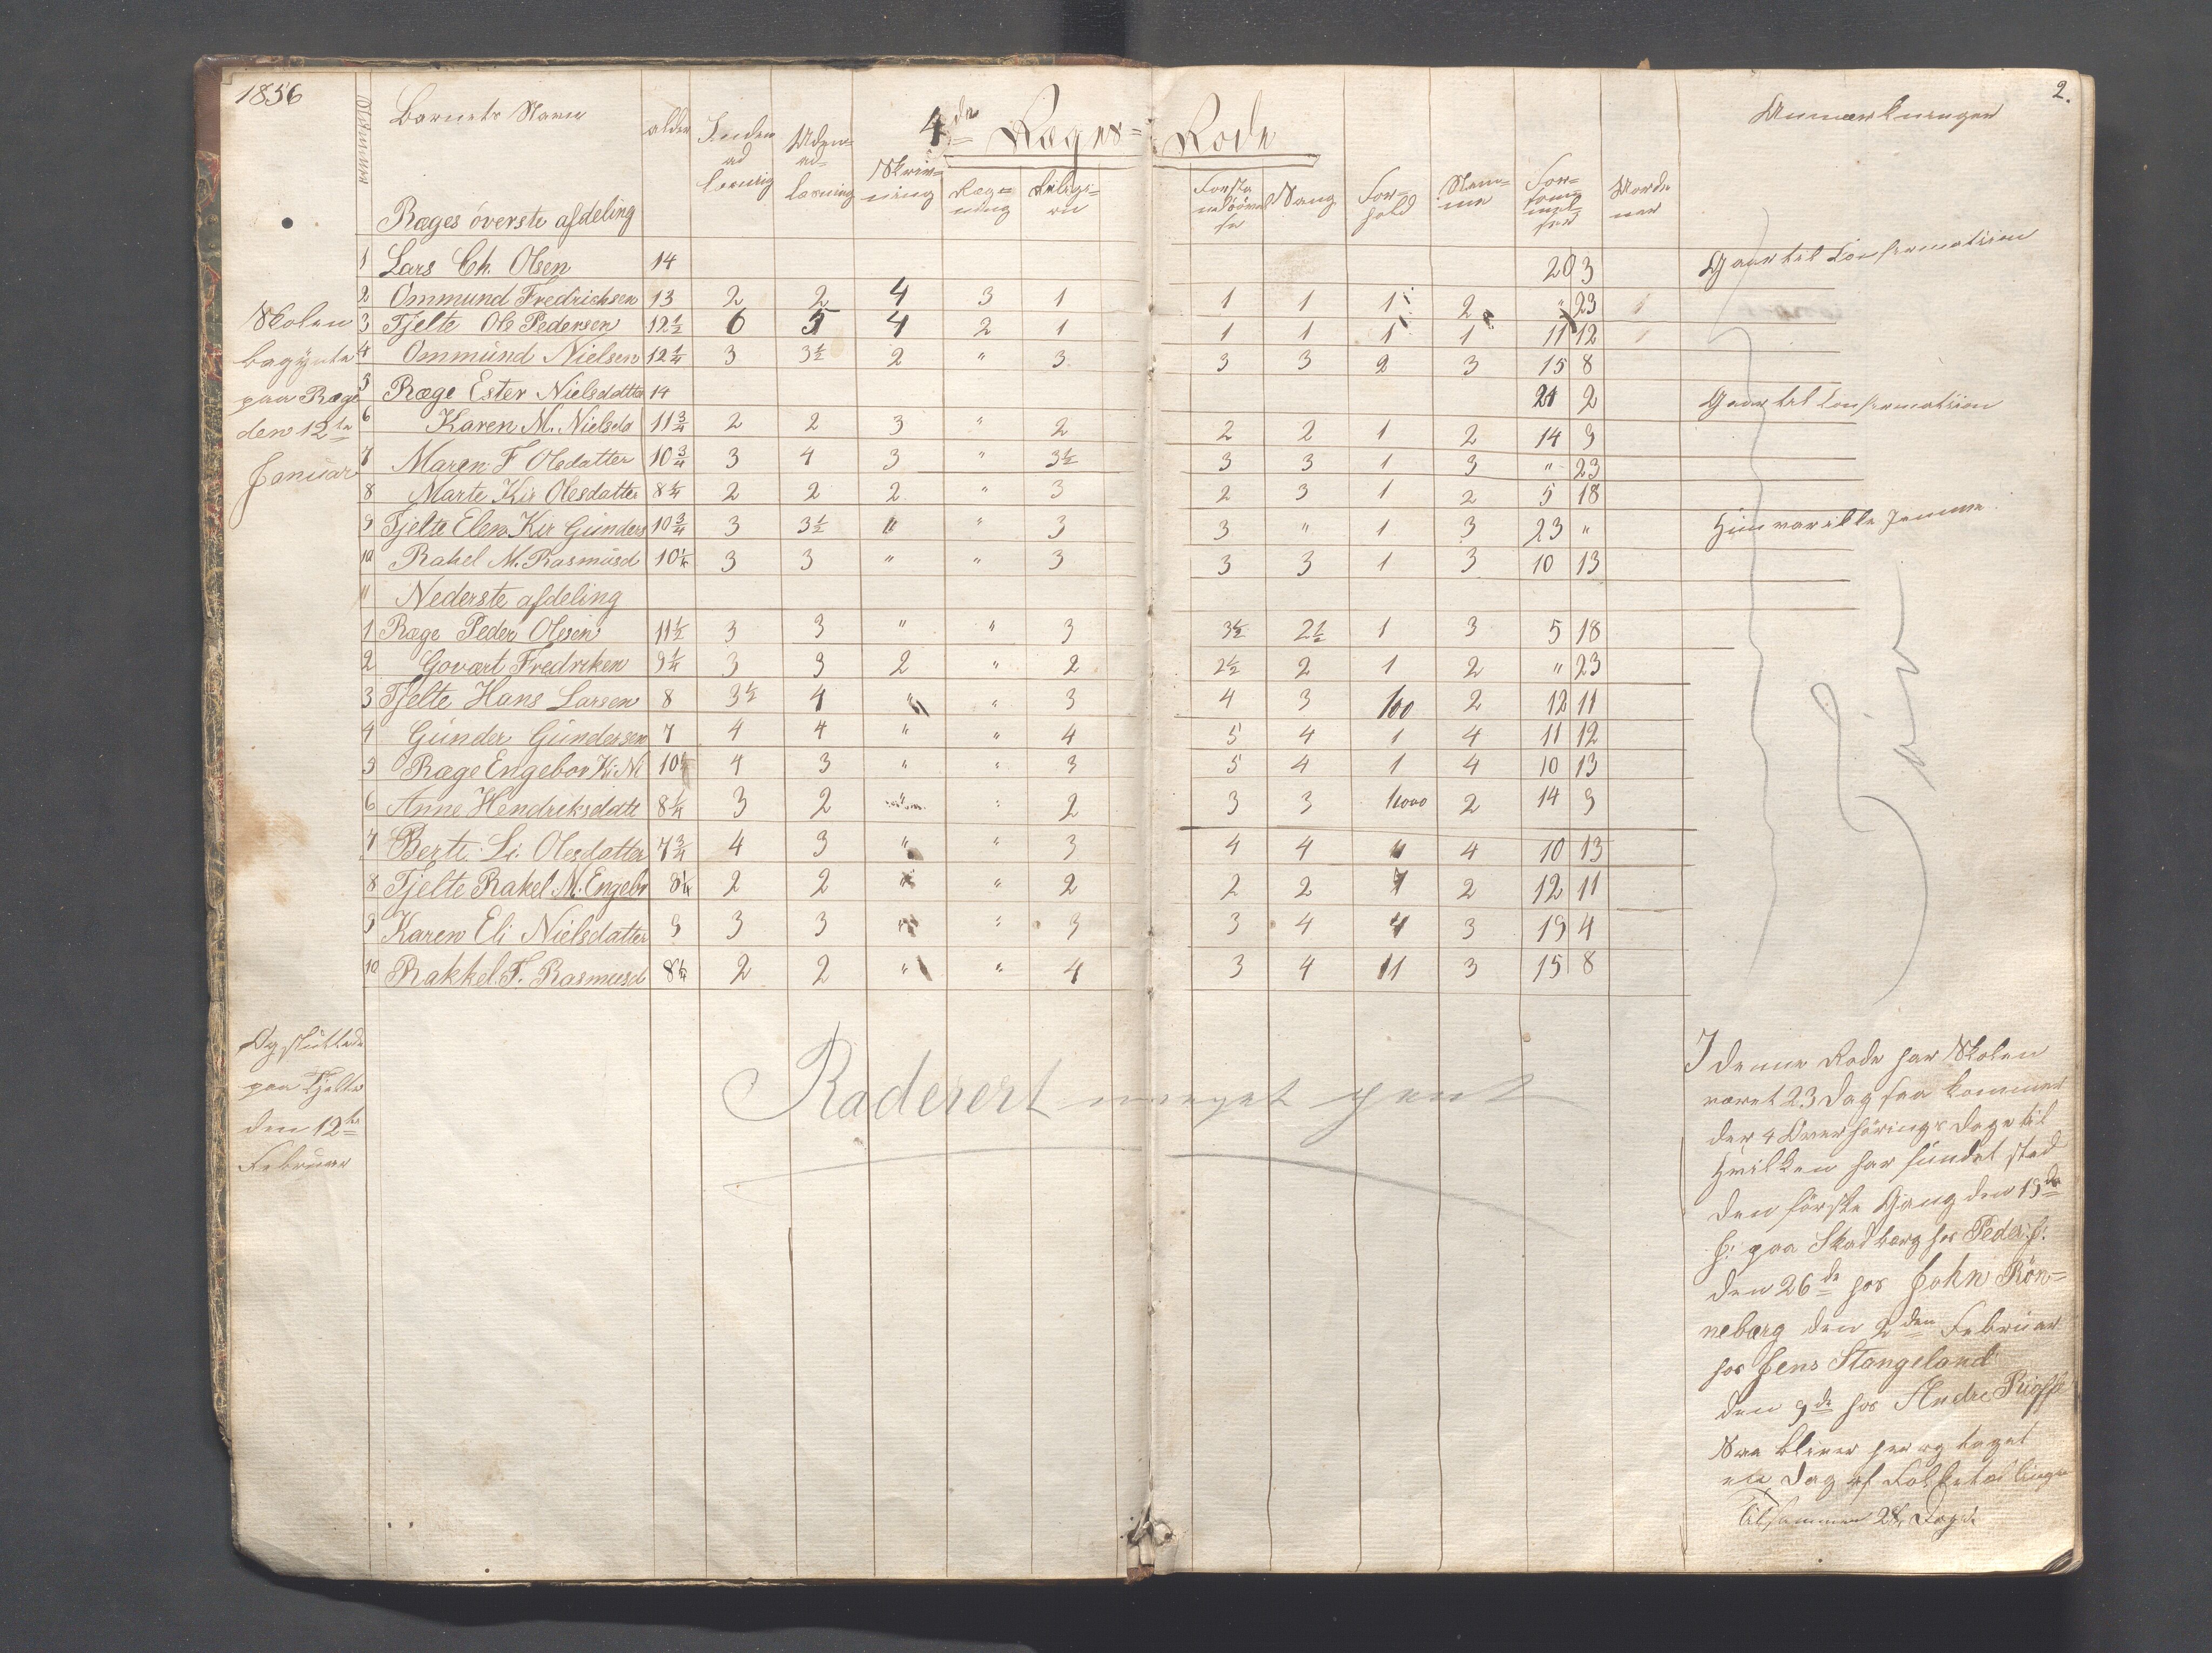 1856
2.
Barnets Navn
alder
Inden
ad
læsning
Uden=
ad=
læsning
4de Ræges= Rode
Skriv=
ning
Reg=
ning
Religi=
on
Sang
For=
hold
Stem=
me
For=
som=
mel=
ser
Ræges överste afdeling
1 Lars Ch. Olsen 14 20 3 Gaar til Confirmation
2 Ommund Fredrichsen 13 2 2 4 3 1 1 1 1 2 " 23
3 Tjelte Ole Pedersen 12½ 6 5 4 2 1 1 1 1 1 11 12
4 Ommund Nielsen 12¼ 3 3½ 2 " 3 3 3 2 3 15 8
5 Ræge Ester Nielsdatter 14 21 2 Gaar til Confirmation
6 Karen M. Nielsda 11¾ 2 2 3 " 2 2 2 1 2 14 9
7 Maren F Olsdatter 10¾ 3 4 3 " 3½ 3 3 1 3 " 23
8 Marte Kir Olesdatter 8¼ 2 2 2 " 3 2 3 1 2 5 18
9 Tjelte Elen Kir Gunders 10¾ 3 3½ " " 3 3 " 1 3 23 " Hun var ikke hemme
10 Rakel M. Rasmusd 10¼ 3 3 " " 3 3 3 1 3 10 13
" Nederste afdeling
1 Ræge Peder Olsen 11½ 3 3 " " 3 3½ 2½ 1 3 5 18
2 Govært Fredriken 9¼ 3 3 2 " 2 2½ 2 1 2 " 23
3 Tjelte Hans Larsen 8 3½ 4 " " 3 4 3 100 2 12 11
4 Gunder Gundersen 7 4 4 " " 4 5 4 1 4 11 12
5 Ræge Engebor K. N 10¼ 4 3 " " 3 5 4 1 4 10 13
6 Anne Hendriksdatt 8¼ 3 2 " " 2 3 3 1000 2 14 9
7 Berte Li. Olesdatter 7¾ 4 3 " " 3 4 4 4 10 13
8 Tjelte Rakel M. Engebr 8¼ 2 2 " " 2 2 2 2 12 11
9 Karen Eli Nielsdatter 9 3 3 " " 3 3 4 3 19 4
10 Rakkel. T. Rasmusd 8¼ 2 2 " " 4 3 4 11 3 15 8
Skolen
begynte
paa Ræge
den 12te
Januar
Og sluttede
paa Tjelte
den 12te
Februar
Raderert meget pent
I denne Rode har Skolen
været 23 Dag saa kommer
der 4 Overhörings Dage til
Hvilken har fundet sted
den förste Gang den 19de
J: paa Skadberg hos Peder J:
den 26de hos John Rön=
neberg den 2den Februar
hos Jens Stangeland
den 9de hos Andre
Saa bliver her og taget
en Dag af Folketællinge
Tilsammen 28 Dage